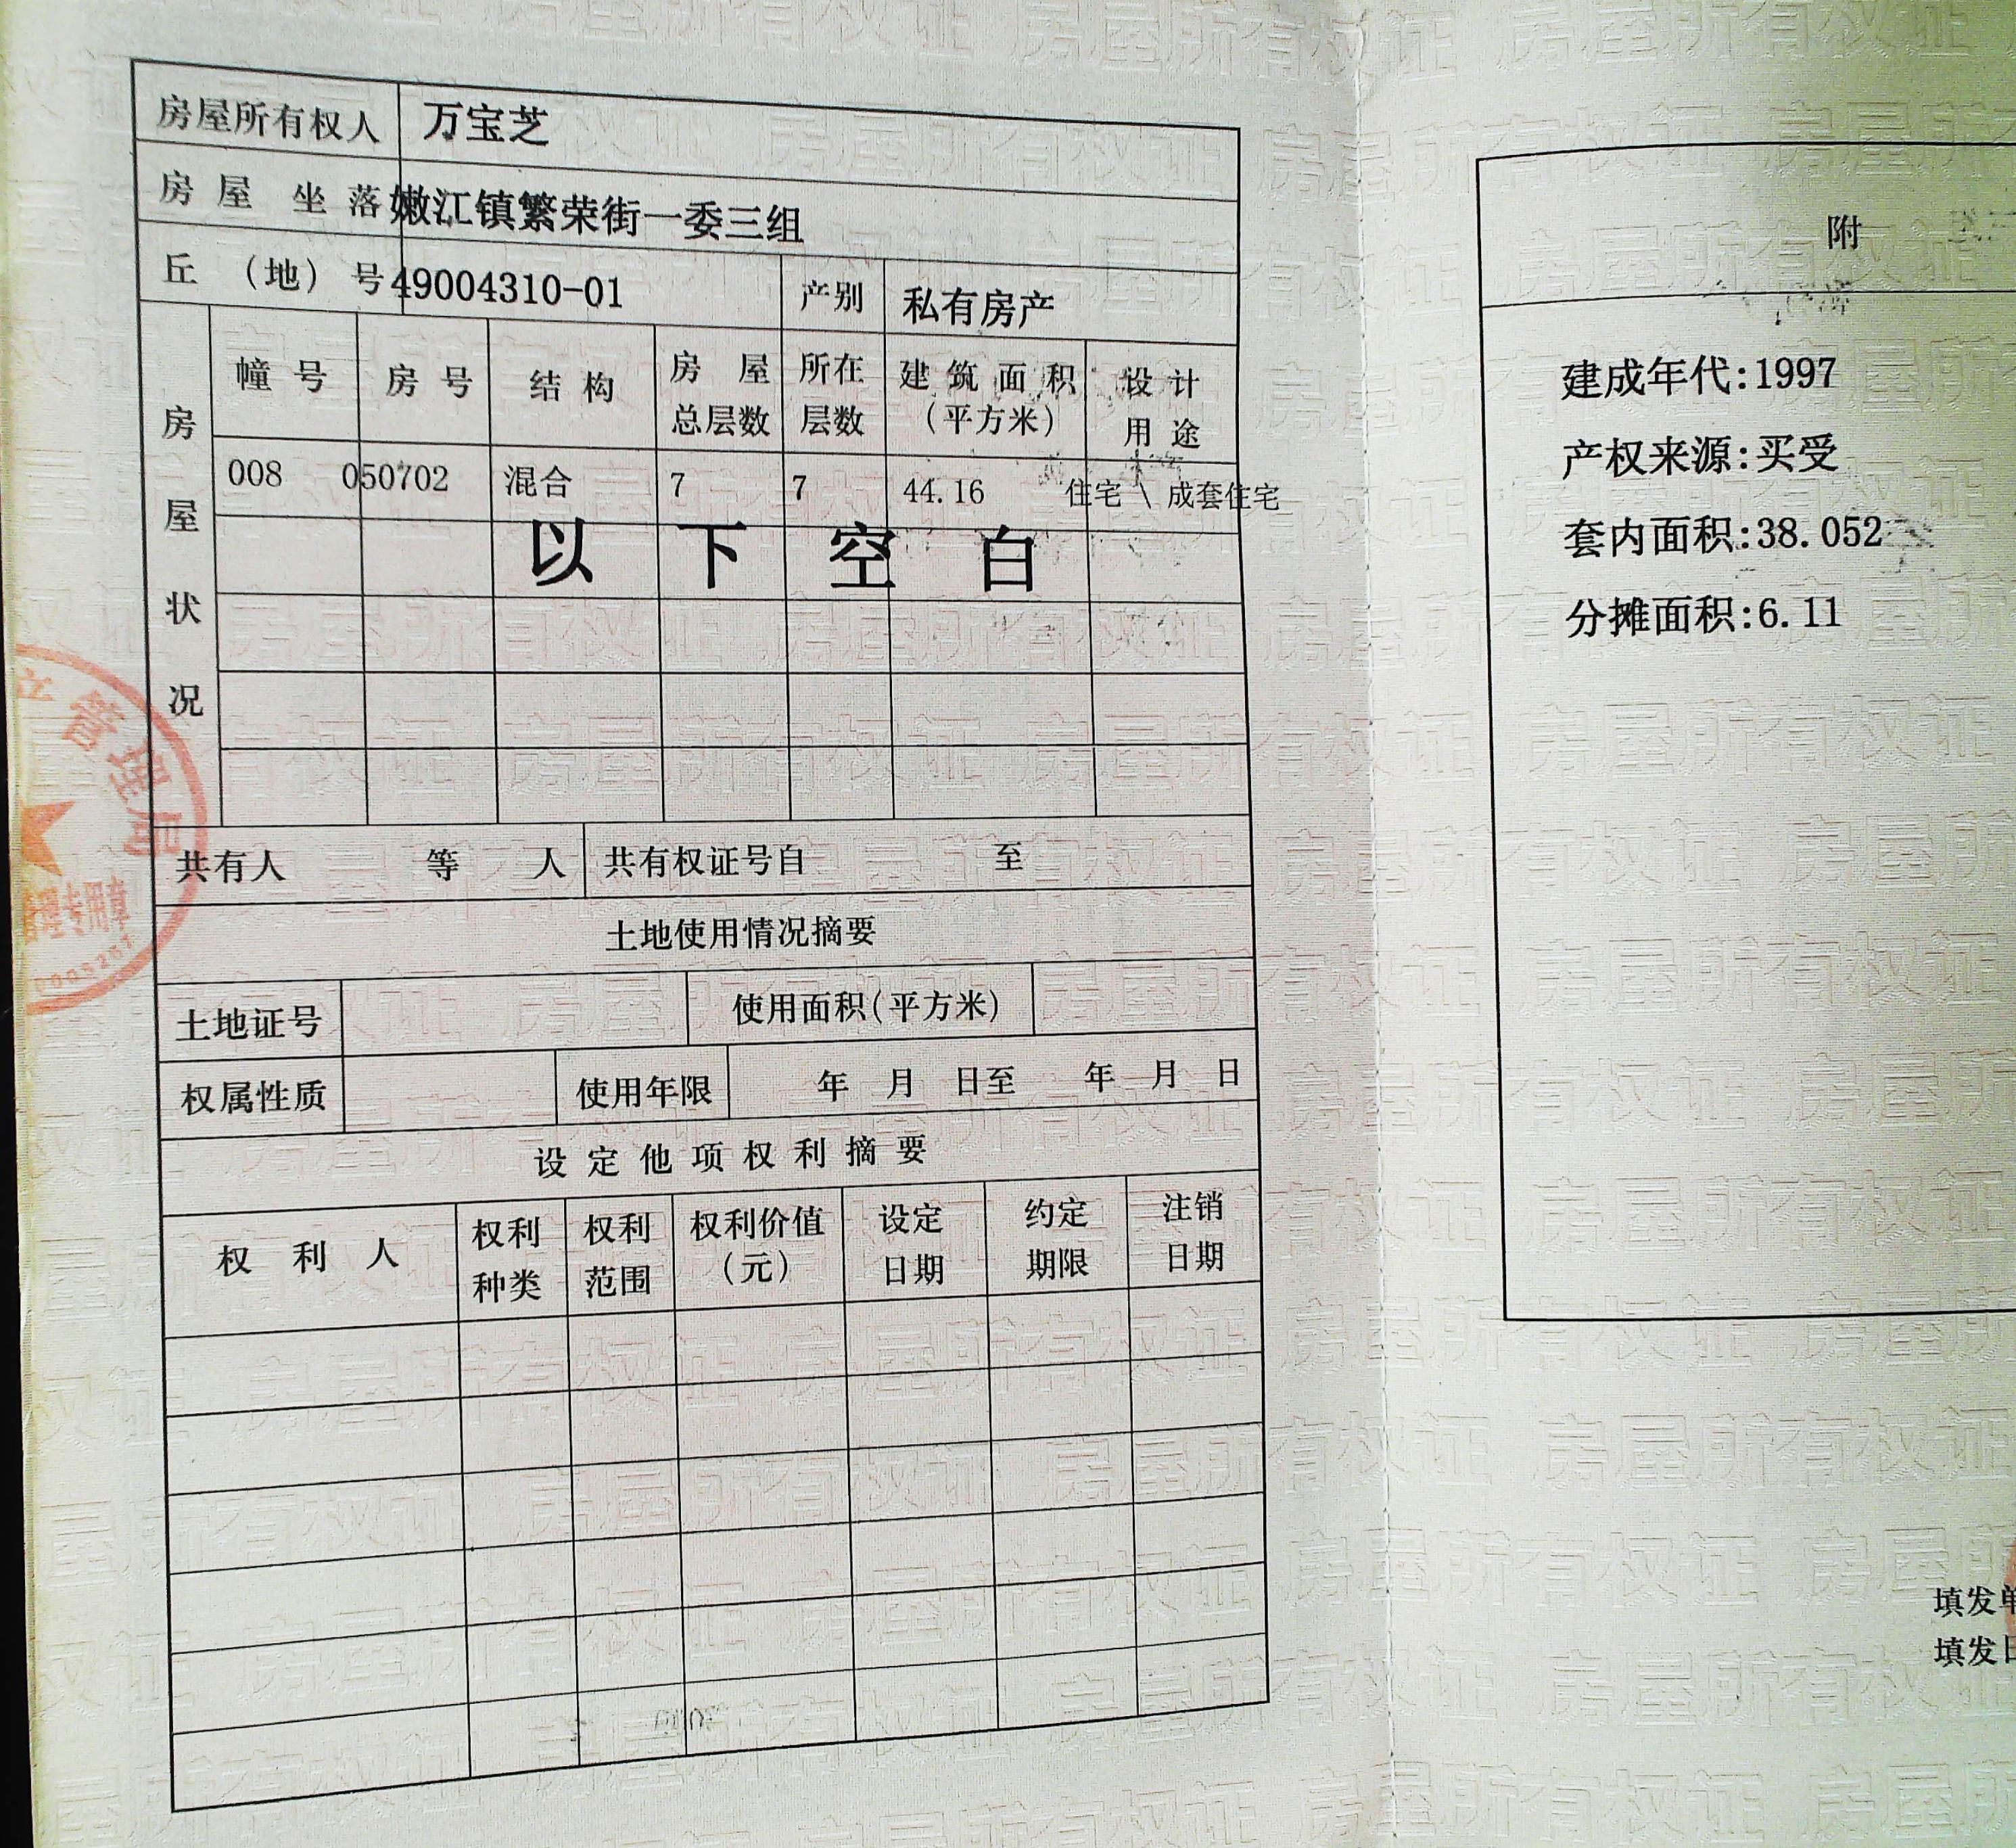 房屋所有权人 万宝芝
房屋坐落 嫩江镇繁荣街一委三组
丘（地）号 49004310-01 产别 私有房产
房屋状况
幢号 房号 结构 房屋总层数 所在层数 建筑面积（平方米） 设计用途
008 050702 混合 7 7 44.16 住宅 \ 成套住宅
以下空白
共有人 等 人 共有权证号自 至
土地使用情况摘要
土地证号 使用面积(平方米)
权属性质 使用年限 年 月 日至 年 月 日
设定他项权利摘要
权利人 权利种类 权利范围 权利价值（元） 设定日期 约定期限 注销日期
管理局
管理专用章
附
建成年代:1997
产权来源:买受
套内面积:38.052
分摊面积:6.11
填发单
填发日
房屋所有权证